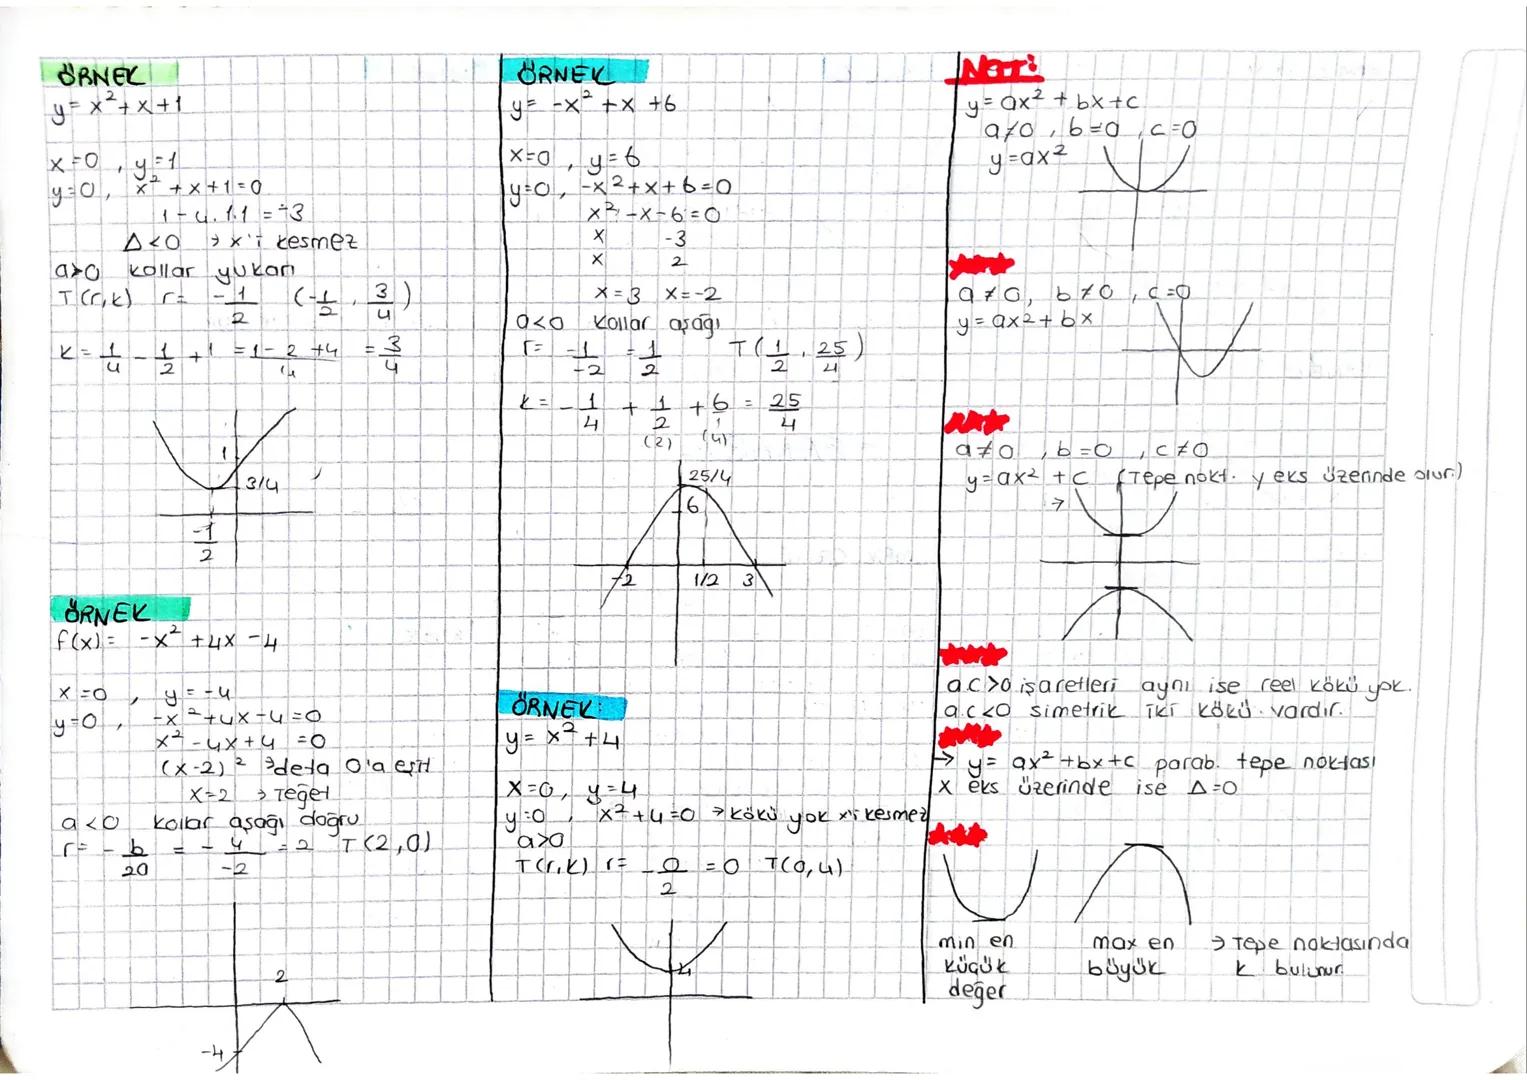 ÖRNEK
y = x² + x + 1
x=0 , y=1
y=0 , x² + x + 1 = 0
1 - 4.1.1 = -3
Δ<0 → x'i kesmez
a>0 kollar yukarı
T(r,k) r = -1/2 (-1/2, 3/4)
k = 1/4 - 1/2 + 1 = 1 - 2 + 4 / 4 = 3/4
1
3/4
-1/2
ÖRNEK
f(x) = -x² + 4x - 4
x=0 , y = -4
y=0 , -x² + 4x - 4 = 0
x² - 4x + 4 = 0
(x-2)² 'de 0'a eşit
x=2 → Teğet
a<0 kollar aşağı doğru
r = - b/2a = - 4/-2 = 2 T(2,0)
2
-4
ÖRNEK
y = -x² + x + 6
x=0 , y = 6
y=0 , -x² + x + 6 = 0
x² - x - 6 = 0
x -3
x 2
x=3 x=-2
a<0 kollar aşağı
r = -1/-2 = 1/2 T(1/2, 25/4)
k = -1/4 + 1/2 + 6/1 = 25/4
(2) (4)
25/4
6
-2 1/2 3
ÖRNEK:
y = x² + 4
x=0, y=4
y=0 , x² + 4 = 0 → kökü yok x'i kesmez
a>0
T(r,k) r = -0/2 = 0 T(0,4)
4
NOT:
y = ax² + bx + c
a≠0 , b=0 , c=0
y=ax²
a≠0, b≠0 , c=0
y = ax² + bx
a≠0 , b=0 , c≠0
y = ax² + c (Tepe nokt. y eks üzerinde olur.)
→
a.c>0 işaretleri aynı ise reel kökü yok.
a.c<0 simetrik iki kökü vardır.
→ y = ax² + bx + c parab. tepe noktası
x eks üzerinde ise Δ=0
min en
küçük
değer
max en
büyük
→ Tepe noktasında
k bulunur.